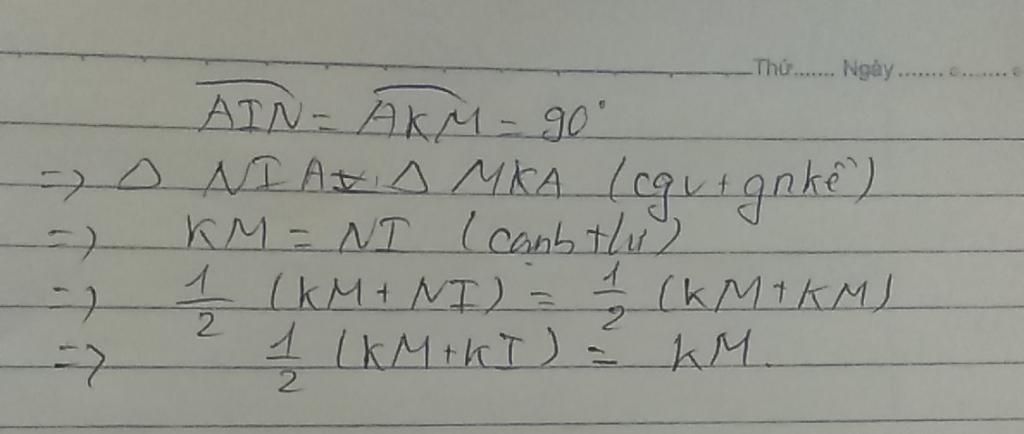 Thứ....... Ngày.......
AIN = AKM = 90°
=> Δ NIA = Δ MKA (cgv + gnkề)
=> KM = NI (cạnh t/ư)
=> 1/2 (KM + NI) = 1/2 (KM + KM)
=> 1/2 (KM + KI) = KM.